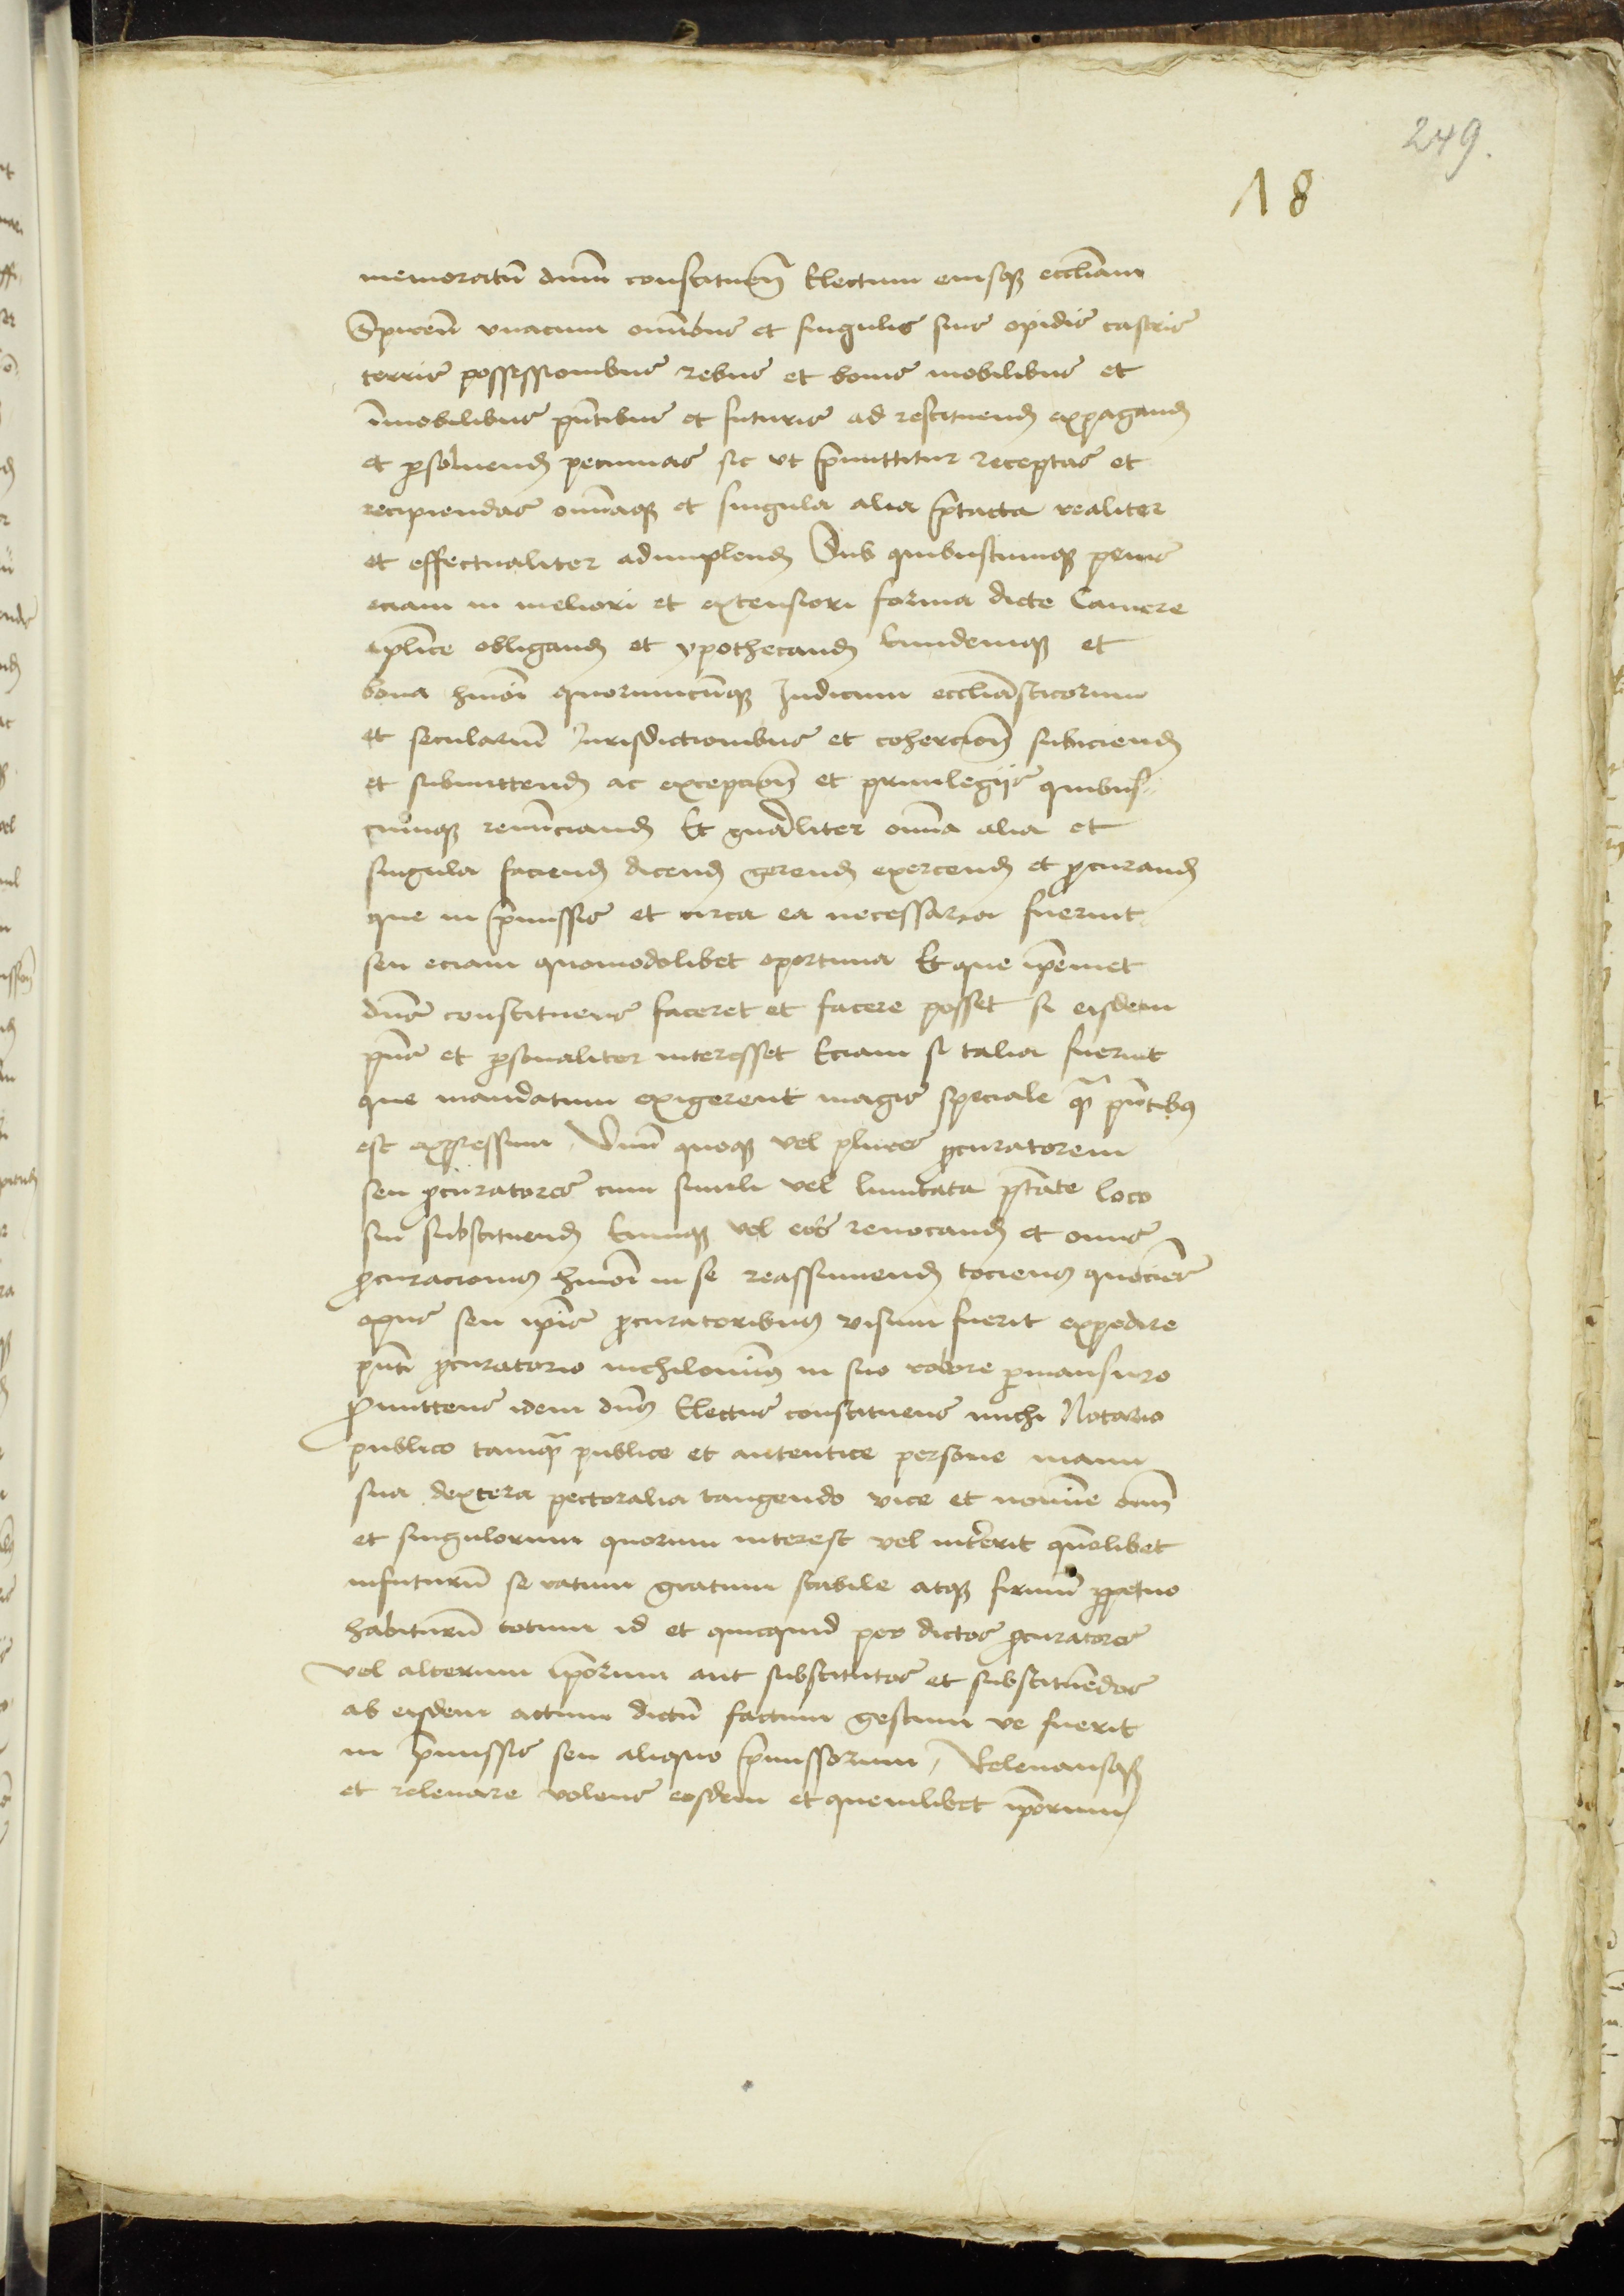 249.
18
memoratū dnūm constituen̄ Electum eiusq̨ eccliam
Spiren̄ vnacum omībus et singulis suis opidis castris
terris possessionibus rebus et bonis mobilibus et
īmobilibus pn̄tibus et futuris ad restituend̄ expagand̄
et ꝑsoluend̄ pecunias sic vt p̄mittitur receptas et
recipiendas omīaq̨ et singula alia p̄tacta realiter
et effectualiter adimplend̄ Sub quibuscumq̨ penis
eciam in meliori et extensiori forma dicte Camere
aplīce obligand̄ et ypothecand̄ Eundemq̨ et
bona hmōi quorumcūq̨ Iudicum eccliasticorum
et seculariū Iurisdictionibus et cohercion̄ subiciend̄
et submittend̄ ac excepcion̄ et priuilegijs quibus-
cumq̨ renūnciand̄ Et gnāliter omīa alia et
singula faciend̄ dicend̄ gerend̄ exercend̄ et ꝓcurand̄
que in p̄missis et circa ea necessaria fuerint
seu eciam quomodolibet oportuna Et que ip̄emet
dn̄s constituens faceret et facere posset si eisdem
pn̄s et ꝑsonaliter interesset Eciam si talia fuerint
que mandatum exigerent magis speciale q̄ pn̄tibus
est expressum Vnū quoq̨ vel plures ꝓcuratorem
seu ꝓcuratores cum simili vel limitata ptāte loco
sui substituend̄ Eumq̨ vel eos reuocand̄ et onus
ꝓcuracionis hmōi in se reassumend̄ tociens quociēs
opus seu ip̄is ꝓcuratoribus visum fuerit expedire
pn̄ti ꝓcuratorio nichilomīus in suo robore ꝑmansuro
Promittens idem dn̄s Electus constituens michi Notario
publico tamq̄ publice et autentice persone manu
sua dextera pectoralia tangendo vice et nomīe omī
et singulorum quorum interest vel intererit quōlibet
infuturū se ratum gratum stabile atq̨ firmū ꝑpetuo
habiturū totum id et quicquid per dictos ꝓcuratores
vel alterum ip̄orum aut substitutos et substituēdos
ab eisdem actum dictū factum gestum ve fuerit
in p̄missis seu aliquo p̄missorum, Releuansq̨
et releuare volens eosdem et quemlibet ip̄orum